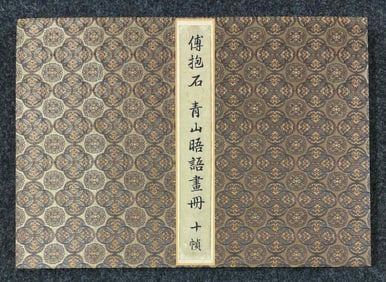 傅抱石 青山晤語畫冊 十幀